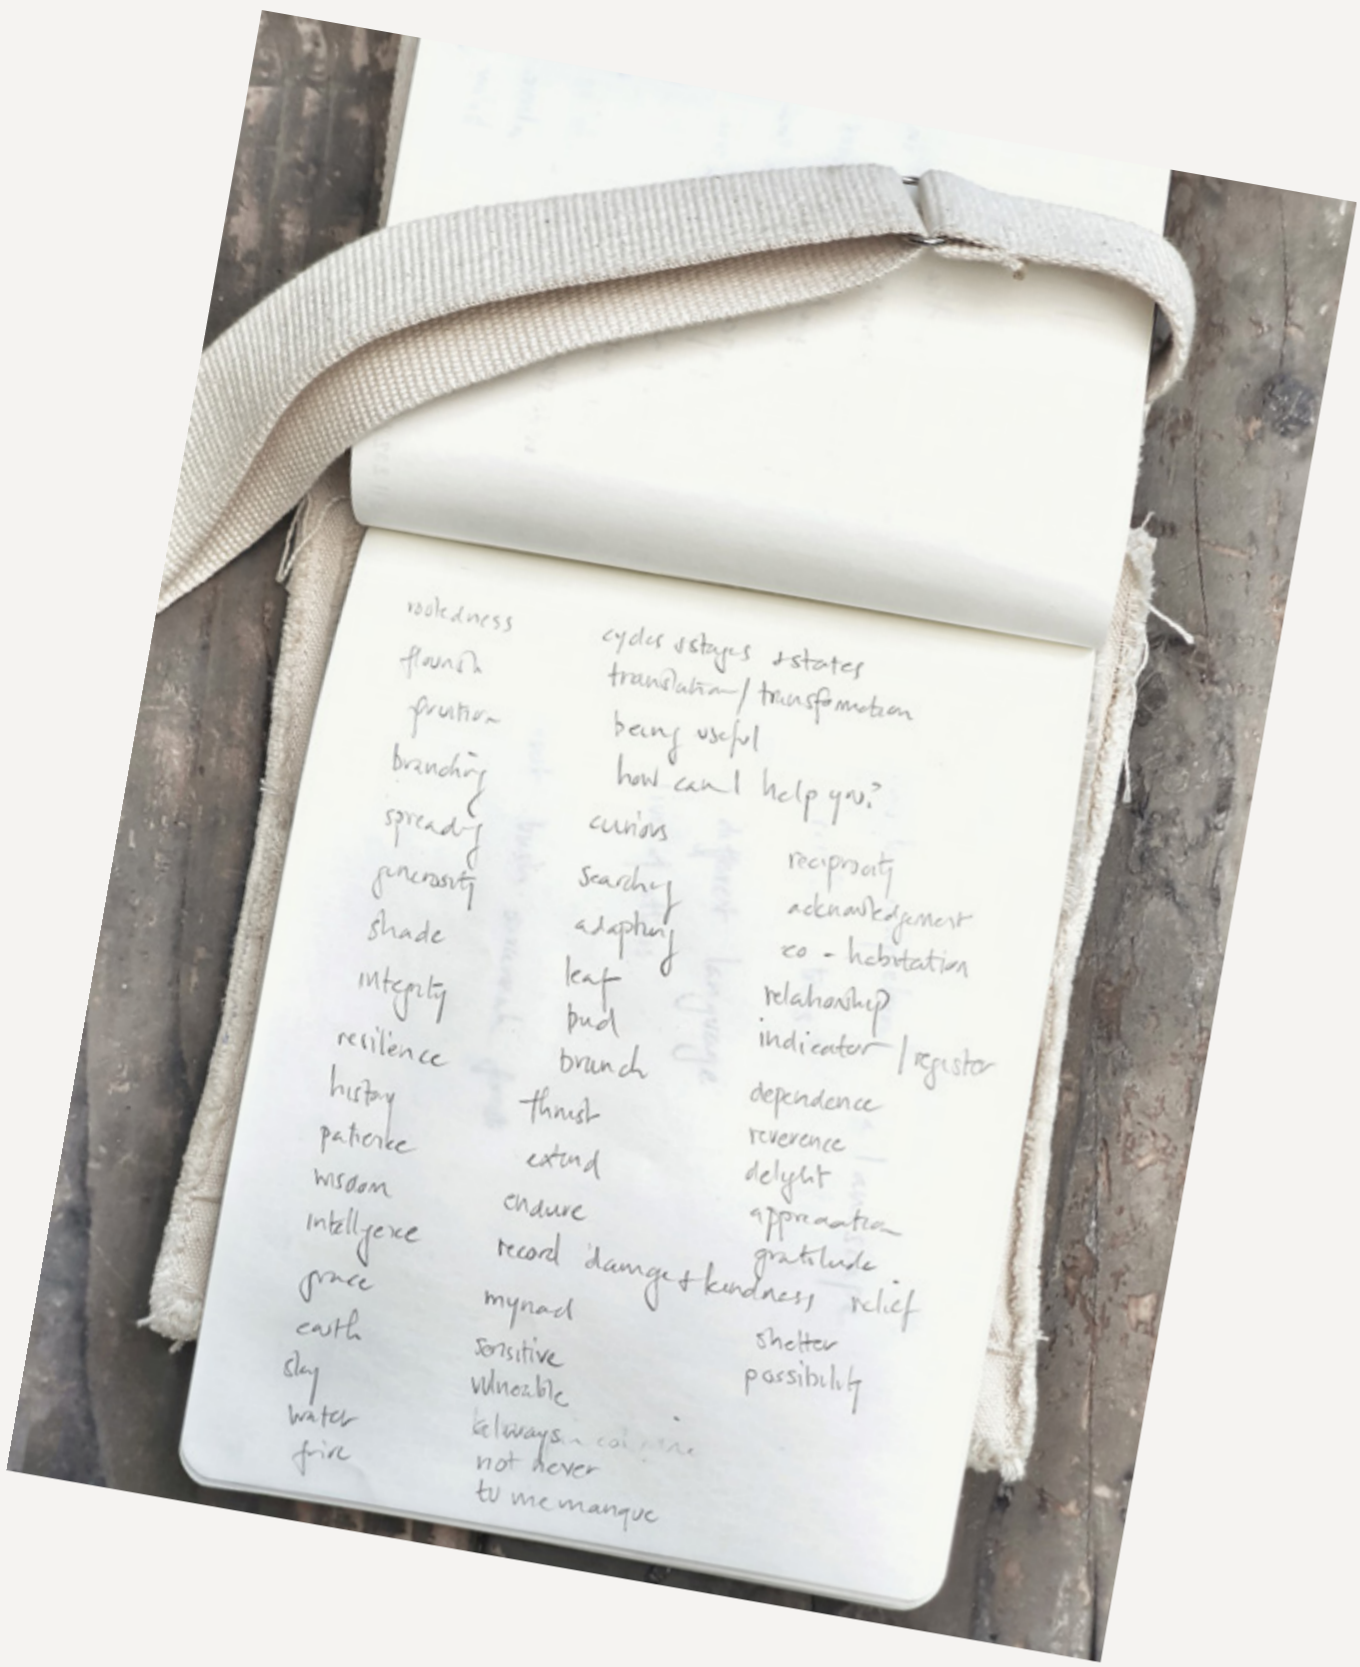 rootedness
flourish
fruition
branching
spreading
generosity
shade
integrity
resilience
history
patience
wisdom
intelligence
grace
earth
sky
water
fire
cycles & stages & states
translation / transformation
being useful
how can I help you?
curious
searching
adapting
leaf
bud
branch
thrust
extend
endure
record damage & kindness
myriad
sensitive
vulnerable
always
not never
tu me manque
reciprocity
acknowledgement
co-habitation
relationship
indicator / register
dependence
reverence
delight
appreciation
gratitude
relief
shelter
possibility